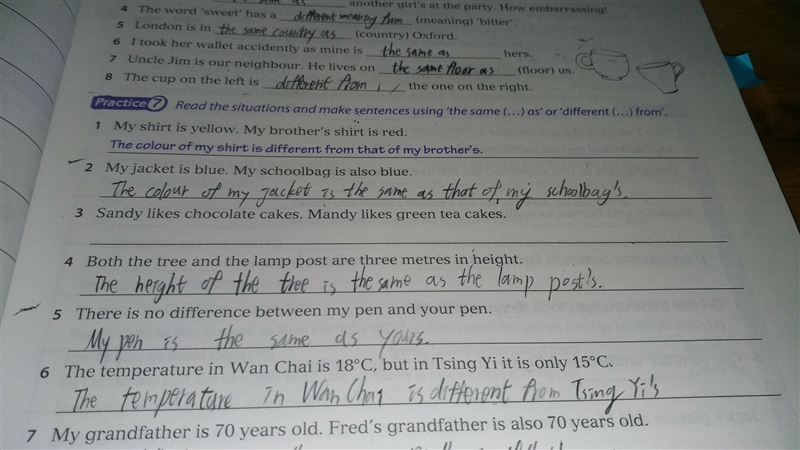 another girl's at the party. How embarrassing!
4 The word 'sweet' has a different meaning from (meaning) 'bitter'.
5 London is in the same country as (country) Oxford.
6 I took her wallet accidently as mine is the same as hers.
7 Uncle Jim is our neighbour. He lives on the same floor as (floor) us.
8 The cup on the left is different from the one on the right.
Practice 7 Read the situations and make sentences using 'the same (...) as' or 'different (...) from'.
1 My shirt is yellow. My brother's shirt is red.
The colour of my shirt is different from that of my brother's.
2 My jacket is blue. My schoolbag is also blue.
The colour of my jacket is the same as that of my schoolbag's.
3 Sandy likes chocolate cakes. Mandy likes green tea cakes.
4 Both the tree and the lamp post are three metres in height.
The height of the tree is the same as the lamp post's.
5 There is no difference between my pen and your pen.
My pen is the same as yours.
6 The temperature in Wan Chai is 18°C, but in Tsing Yi it is only 15°C.
The temperature in Wan Chai is different from Tsing Yi's
7 My grandfather is 70 years old. Fred's grandfather is also 70 years old.